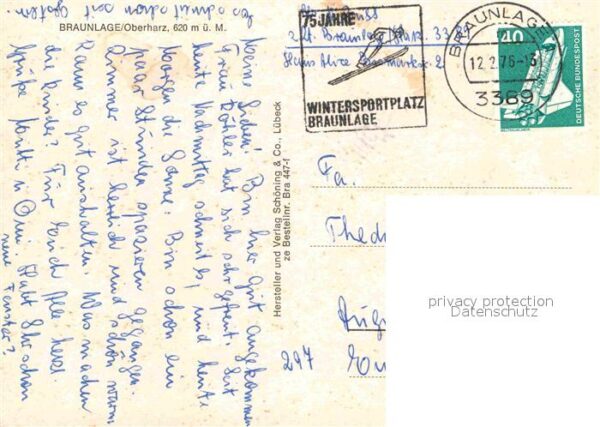 BRAUNLAGE/Oberharz, 620 m ü. M.
Meine Lieben! Bin hier gut angekommen
Frau Köhler hat sich sehr gefreut. Seit
heute Nachmittag schneit es, und heute
Morgen die Sonne. Bin schon ein
paar Stunden spazieren gegangen.
Zimmer ist herrlich und schön warm
Kann es gut aushalten. Was machen
die Kinder? Für Euch Alle herzl.
Grüße Mutti u. Omi. Habt Ihr schon
neue Fenster?
Hersteller und Verlag Schöning & Co., Lübeck
ze Bestellnr. Bra 447-f
z. Zt. Braunlage 33
Haus
75 JAHRE
WINTERSPORTPLATZ
BRAUNLAGE
BRAUNLAGE
12.2.76-13
3389
40
DEUTSCHE BUNDESPOST
Fa.
Thed
297
privacy protection
Datenschutz